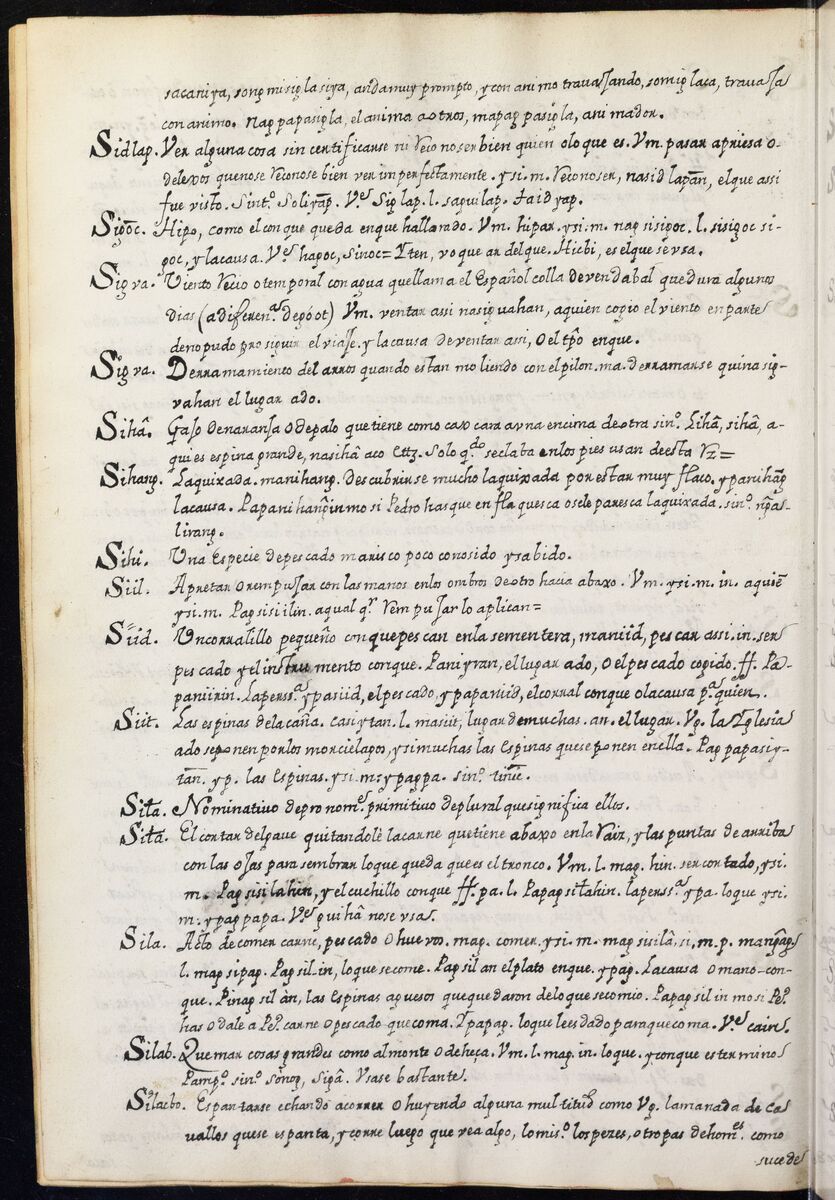 sacaniya, song misiglasiya, anda muy prompto, y con animo travajando, somiglaca, travaja
con animo. Nagpapasigla, el anima a otros, mapagpasigla, animador.
Sidlap. Ver alguna cosa sin certificarse ni Recio noser bien quien olo que es. Vm. pasar apriesa o-
delexos quenose Reconose bien ver imperfectamente. ysi.m. Reconoser, nasidlapan, elque assi
fue visto. Sint.o Soliyap. V.e Siglap. l. saquilap. taidyap.
Sigoc. Hipo, como el con que queda enque hallorado. Vm. hipar, ysi.m. nag sisigoc. l. sisigoc si-
goc, y lacausa. V.e hagoc, sinoc= Yten, voquear delque. Hicbi, es elque se vsa.
Sigva. Viento Recio o temporal con agua quellama el Español colla de vendabal quedura algunos
dias (a diferen.a degoot) Vm. ventar assi nasiguahan, aquien cogio el viento enparte
denopudo proseguir el viaje. y la causa deventar assi, o el tpo enque.
Sigva. Derramamiento del arros quando estan moliendo con el pilon. ma. derramarse quinasig-
vahan el lugar ado.
Sihâ. Gajo denaranja o depalo que tiene como caxcara avna encima de otra sin.o Lihâ, sihâ, a-
qui es espina grande, nasihâ aco Ettz. Solo q.do seclaba enlos pies usan de esta Rz=
Sihang. Laquixada. manihang. Descubrirse mucho laquixada por estar muy flaco. y panihang
lacausa. Papanihanginmo si Pedro has que enflaquesca osele paresca laquixada. sin.o ngas-
lirang.
Sihi. Una Especie depescado marisco poco conosido ysabido.
Siil. Apretar orempujar con las manos enlos ombros de otro hacia abaxo. Vm. ysi.m. in. aquiē
ysi.m. Pagsisiilin. aqual q.r Rempujar lo aplican=
Siid. Un corralillo pequeño conque pescan enla sementera, maniid, pescar assi. in. ser
pescado y el instrumento conque. Paniyran, el lugar ado, o el pescado cogido. ff. Pa-
paniirin. Laperss.a y pasiid, el pescado, y papaniid, el corral conque olacausa p.a quien.
Siit. Las espinas de la caña. Casiytan. l. masiit, lugar demuchas. an. el lugar. Vg. la Yglesia
ado seponen porlos morcielagos, y si muchas las Espinas quese ponen enella. Pagpapasiy-
tan. y p. las Espinas. ysi.m. y pagpa. sin.o tinic.
Sila. Nominativo de pronom.e primitivo deplural quesignifica ellos.
Sila. El cortar delgave quitandole lacarne quetiene abaxo enla Raiz, y las puntas de arriba
con las ojas para sembrar loque queda que es el tronco. Vm. l. mag. hin. ser cortado, ysi.
m. Pagsisilahin, y el cuchillo conque ff. pa. l. Papagsilahin. laperss.a y pa. loque ysi.
m. y pagpapa. V.e quihâ nose vsa.
Sila. Acto de comer carne, pescado o huevos. mag. comer, ysi.m. magsisilâ, si, m.p. mangag
l. magsipag. Pagsil.in, loque secome. Pagsilan el plato enque. y pag. Lacausa o mano con-
que. Pinagsilàn, las Espinas aguesos quequedaron deloque secomio. Papagsilinmo si Pe.o
has o dale a Pe.o carne o pescado que coma. Ypapag. loque lees dado paraque coma. V.e cain.
Silab. Quemar cosas grandes como al monte o deheça. Vm. l. mag. in. loque. y conque es termino
Pamp.o sin.o sonog, sigâ. Vsase bastante.
Silacbo. Espantarse echando acorrer o huyendo alguna multitud como Vg. lamanada de ca-
vallos quese espanta, y corre luego que vea algo, lomis.o los pezes, o tropas de hom.es como
sucede